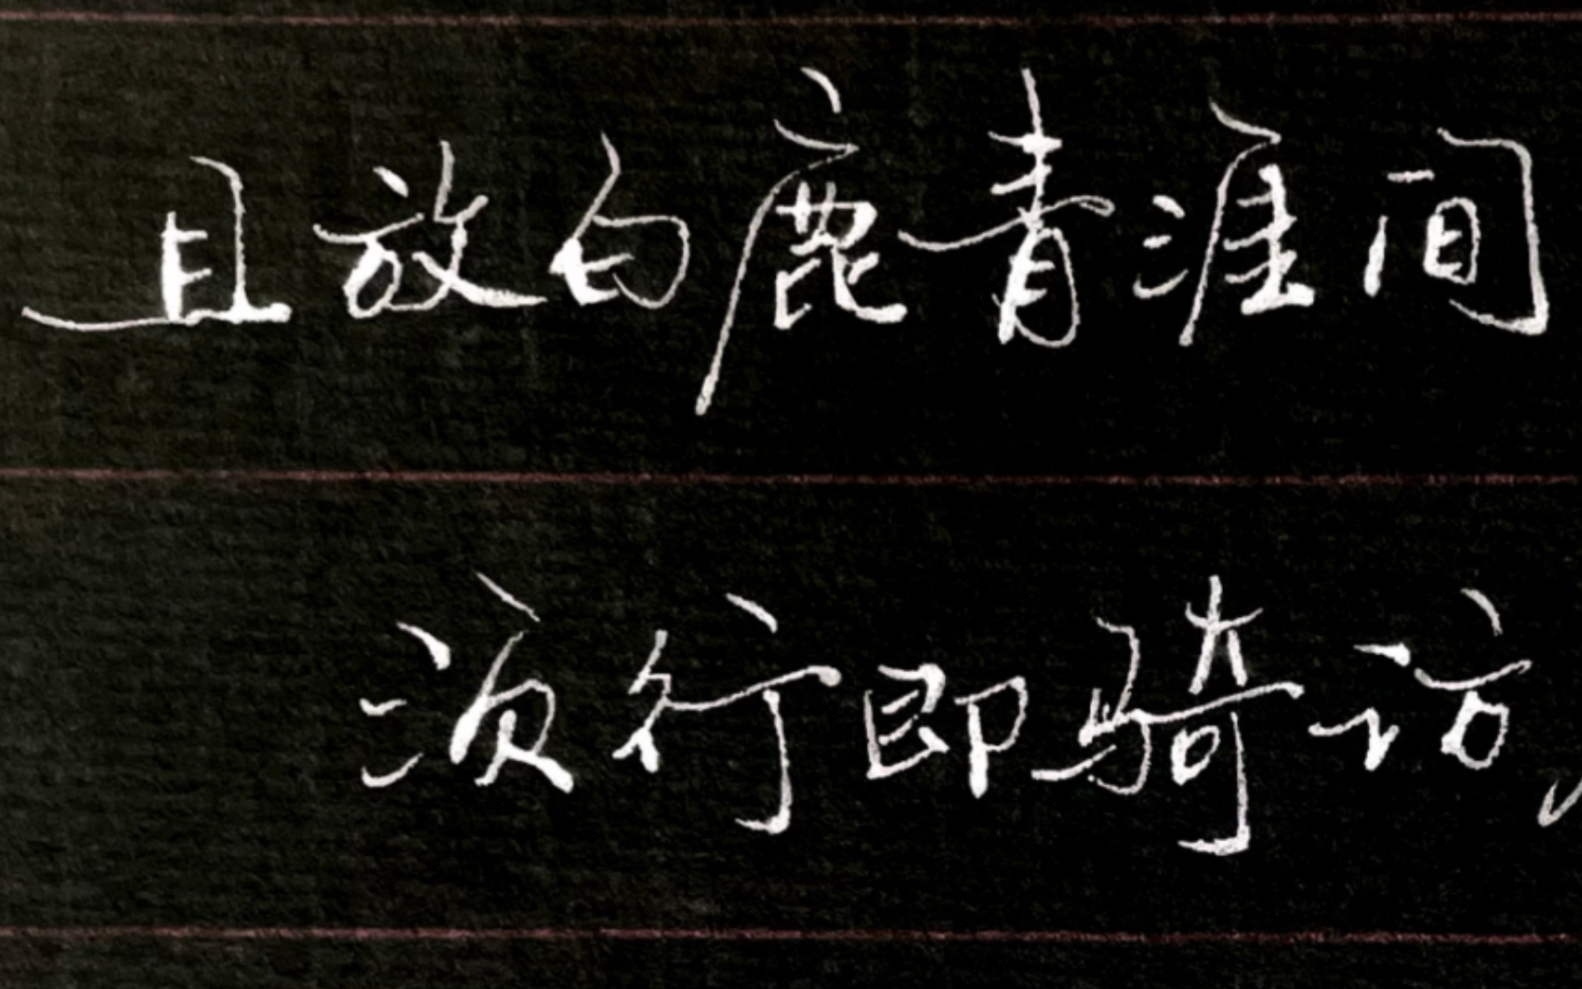 且放白鹿青涯间
须行即骑访